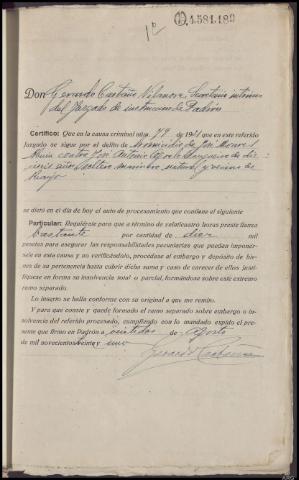 1º
4.581.189
Don Gerardo Castaño Vilanova, Secretario interino
del Juzgado de instrucción de Padrón
Certifico: Que en la causa criminal núm. 79 de 1921 que en este referido
Juzgado se sigue por el delito de homicidio de José
contra José Antonio
años soltero natural y vecino de
se dictó en el día de hoy el auto de procesamiento que contiene el siguiente
Particular: Requiérase para que a término de veinticuatro horas preste fianza
bastante por cantidad de diez mil
pesetas para asegurar las responsabilidades pecuniarias que puedan imponér-
sele en esta causa y no verificándolo, procédase al embargo y depósito de bie-
nes de su pertenencia hasta cubrir dicha suma y caso de carecer de ellos justi-
fíquese en forma su insolvencia total o parcial, formándose sobre este extremo
ramo separado.
Lo inserto se halla conforme con su original a que me remito.
Y para que conste y quede formado el ramo separado sobre embargo o in-
solvencia del referido procesado, cumpliendo con lo mandado expido el pre-
sente que firmo en Padrón a veintidos de agosto
de mil novecientos veinte y uno
Gerardo Castaño